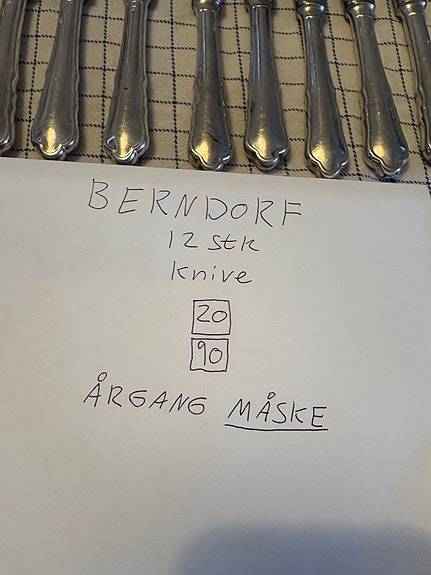 BERNDORF
12 stk
knive
20
90
ÅRGANG MÅSKE